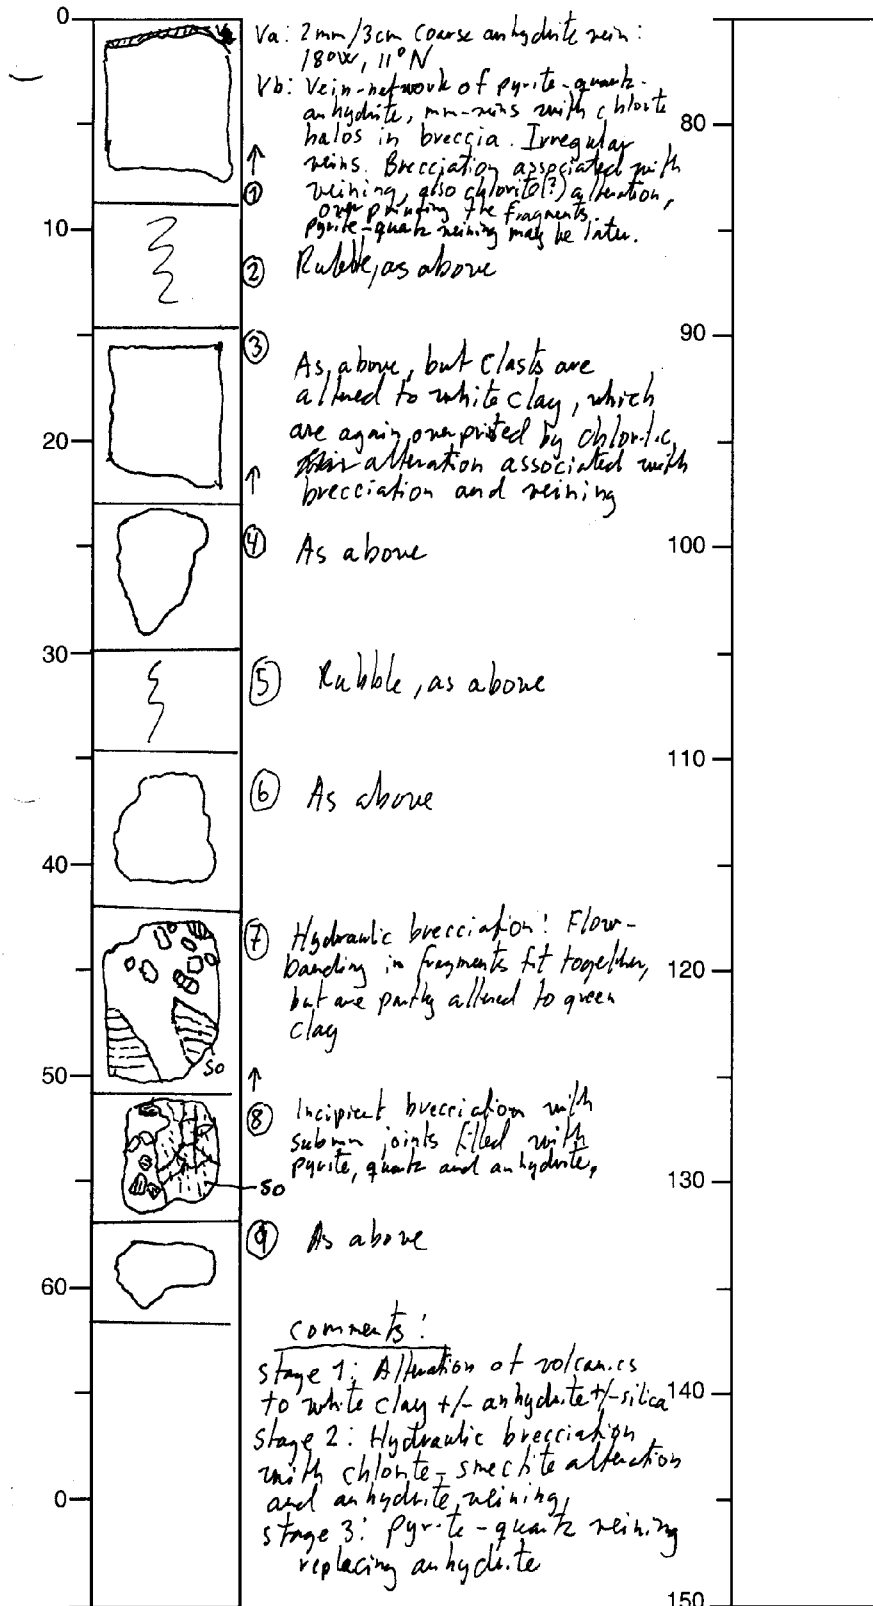 0
Va: 2mm/3cm coarse anhydrite vein:
180W, 11°N
Vb: Vein-network of pyrite-quartz-
anhydrite, mm-veins with chlorite
halos in breccia. Irregular
veins. Brecciation associated with
veining, also chlorite(?) alteration,
overprinting the fragments.
pyrite-quartz veining may be later.
80
↑
1
10
2 Rubble, as above
90
3
As above, but clasts are
altered to white clay, which
are again overprinted by chloritic
alteration associated with
brecciation and veining
20
↑
4 As above
100
30
5 Rubble, as above
110
6 As above
40
7 Hydraulic brecciation! Flow-
banding in fragments fit together,
but are partly altered to green
clay
120
So
50
↑
8 Incipient brecciation with
submm joints filled with
pyrite, quartz and anhydrite,
So
130
9 As above
60
comments:
stage 1: Alteration of volcanics
to white clay +/- anhydrite +/- silica
140
stage 2: Hydraulic brecciation
with chlorite-smectite alteration
and anhydrite veining,
0
stage 3: pyrite-quartz veining
replacing anhydrite
150